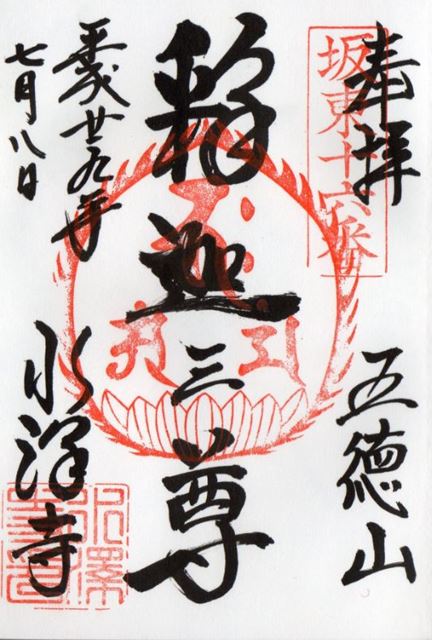 奉拝
坂東十六番
五德山
釋迦三尊
平成廿九年
七月八日
水澤寺
水澤寺